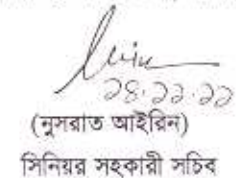 ২৪.১১.২২
(নুসরাত আইরিন)
সিনিয়র সহকারী সচিব